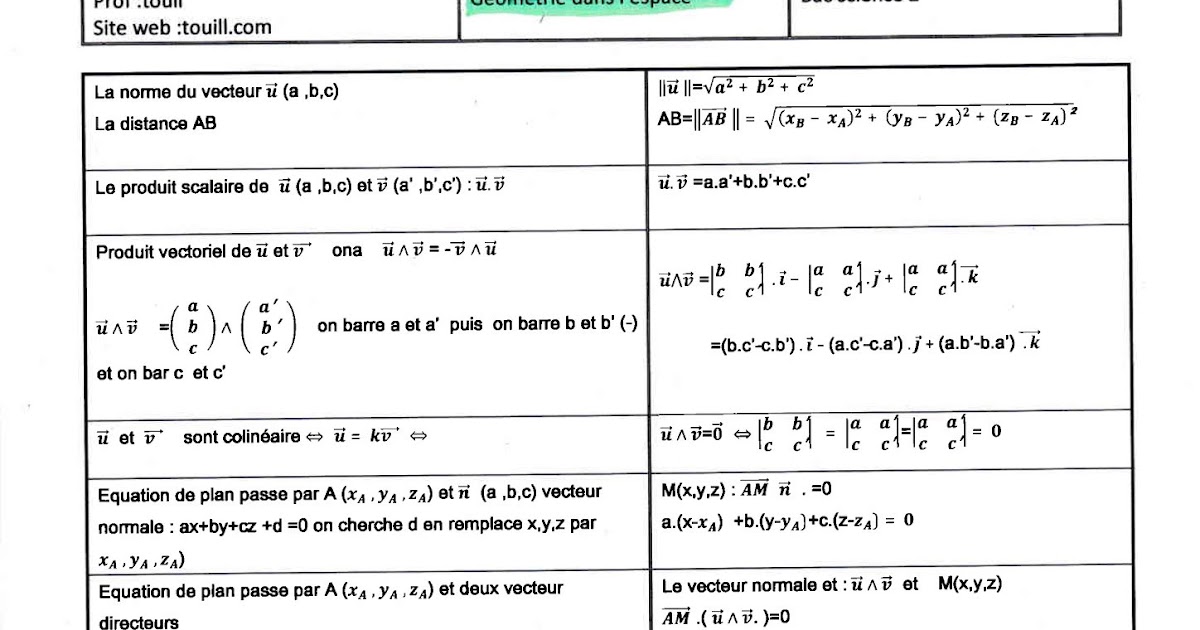 Prof :touil
Géométrie dans l'espace
Bac science 2
Site web :touill.com
La norme du vecteur u⃗ (a ,b,c)
La distance AB
||u⃗ ||=√(a² + b² + c²)
AB=||AB⃗ || = √((x_B − x_A)² + (y_B − y_A)² + (z_B − z_A)²)
Le produit scalaire de u⃗ (a ,b,c) et v⃗ (a' ,b',c') : u⃗.v⃗
u⃗.v⃗ =a.a'+b.b'+c.c'
Produit vectoriel de u⃗ et v⃗ ona u⃗ ∧ v⃗ = -v⃗ ∧ u⃗
u⃗ ∧ v⃗ =(a b c) ∧ (a′ b′ c′) on barre a et a' puis on barre b et b' (-)
et on bar c et c'
u⃗∧v⃗ =|b b'; c c'| .i⃗ − |a a'; c c'|.j⃗ + |a a'; c c'|.k⃗
=(b.c'-c.b') . i⃗ - (a.c'-c.a') . j⃗ + (a.b'-b.a') .k⃗
u⃗ et v⃗ sont colinéaire ⇔ u⃗ = kv⃗ ⇔
u⃗ ∧ v⃗=0⃗ ⇔ |b b'; c c'| = |a a'; c c'|=|a a'; c c'| = 0
Equation de plan passe par A (x_A , y_A , z_A) et n⃗ (a ,b,c) vecteur
normale : ax+by+cz +d =0 on cherche d en remplace x,y,z par
x_A , y_A , z_A)
M(x,y,z) : AM⃗ n⃗ . =0
a.(x-x_A) +b.(y-y_A)+c.(z-z_A) = 0
Equation de plan passe par A (x_A , y_A , z_A) et deux vecteur
directeurs
Le vecteur normale et : u⃗ ∧ v⃗ et M(x,y,z)
AM⃗ .( u⃗ ∧ v⃗. )=0